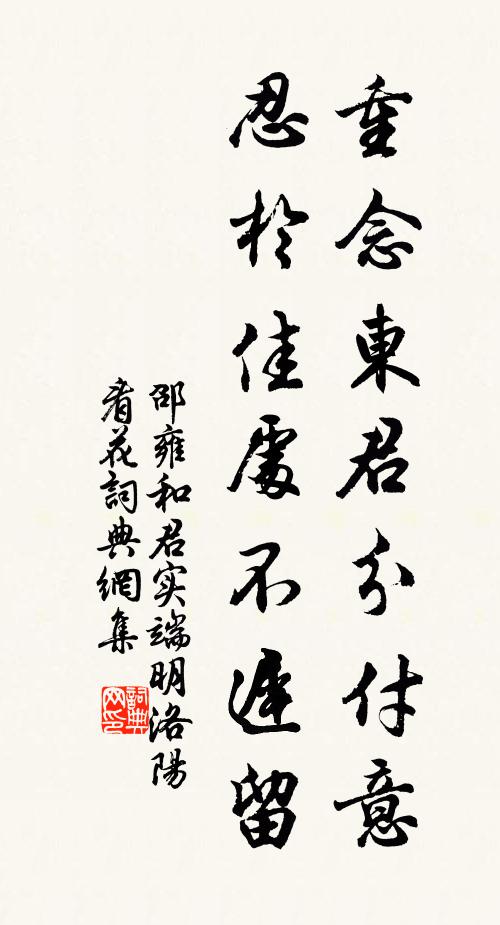 重念東君分付意
忍於佳處不遲留
邵雍和君实端明洛陽
看花詞典網集
詞典
网印